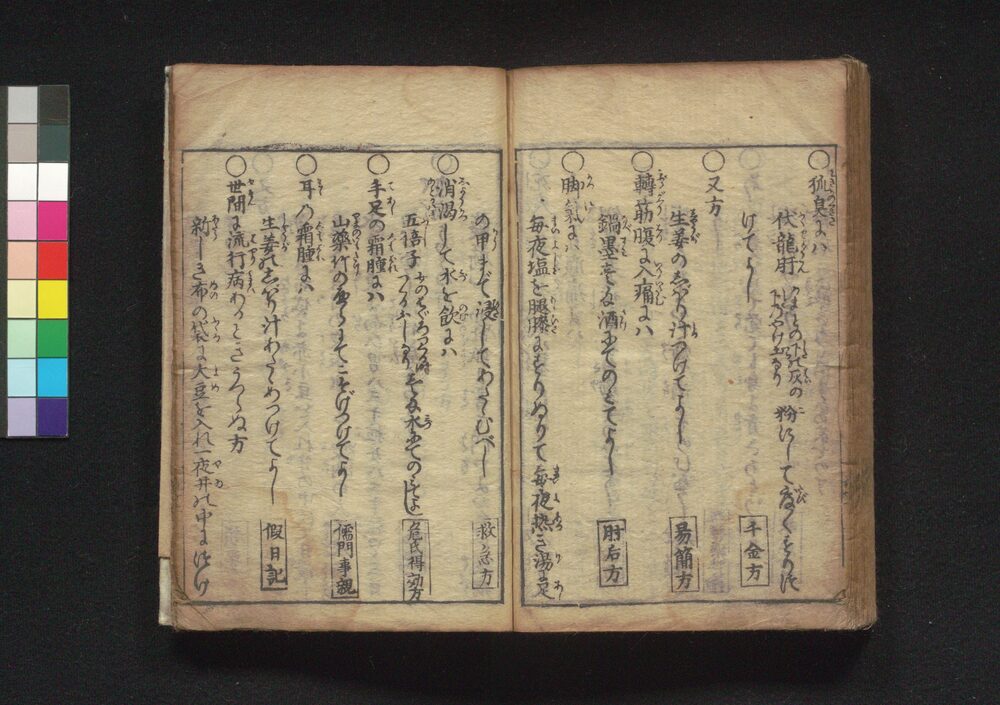 ○狐臭にハ
伏龍肝 かまどの下の灰の下のやけ土なり 粉にして度々すりつ
けてよし 千金方
○又方
生姜のしぼり汁つけてよし 易簡方
○轉筋腹に入痛にハ
鍋墨をこ酒にてのみてよし 肘后方
○脚氣にハ
毎夜塩を腿膝にすりぬりて毎夜熱き湯に足
の甲まで浸してあたゝむべし 救急方
○消渇して水を飲にハ
五倍子 水にてのむべし 危氏得効方
○手足の霜腫にハ
山藥 つけてよし 儒門事親
○耳の霜腫にハ
生姜のしぼり汁あたゝめつけてよし 假日記
○世間に流行病あるときうつらぬ方
新しき布の袋に大豆を入れ一夜井の中につけ